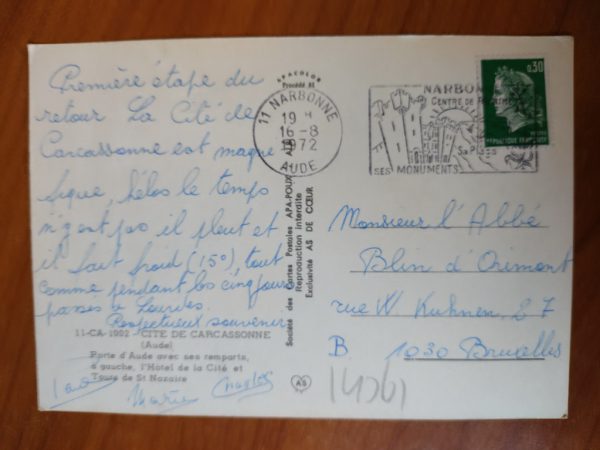 Première étape du
retour La Cité de
Carcassonne est magni
fique, hélas le temps
n'y est pas il pleut et
il fait froid (15°) tout
comme pendant les cinq jours
passés à Lourdes.
Respectueux souvenir
11-CA-1902 - CITE DE CARCASSONNE
(Aude)
Porte d'Aude avec ses remparts,
à gauche, l'Hôtel de la Cité et
Tours de St Nazaire
Maria Charles
APACOLOR
Société des Cartes Postales APA-POUX
Reproduction interdite
Exclusivité AS DE CŒUR
AS
11 NARBONNE
19 H
16-8
1972
AUDE
NARBONNE
CENTRE DE
SES MONUMENTS
SA PLAGE
0,30
REPUBLIQUE FRANÇAISE
Monsieur l'Abbé
Blin d'Orimont
rue W. Kuhnen, 27
B 1030 Bruxelles